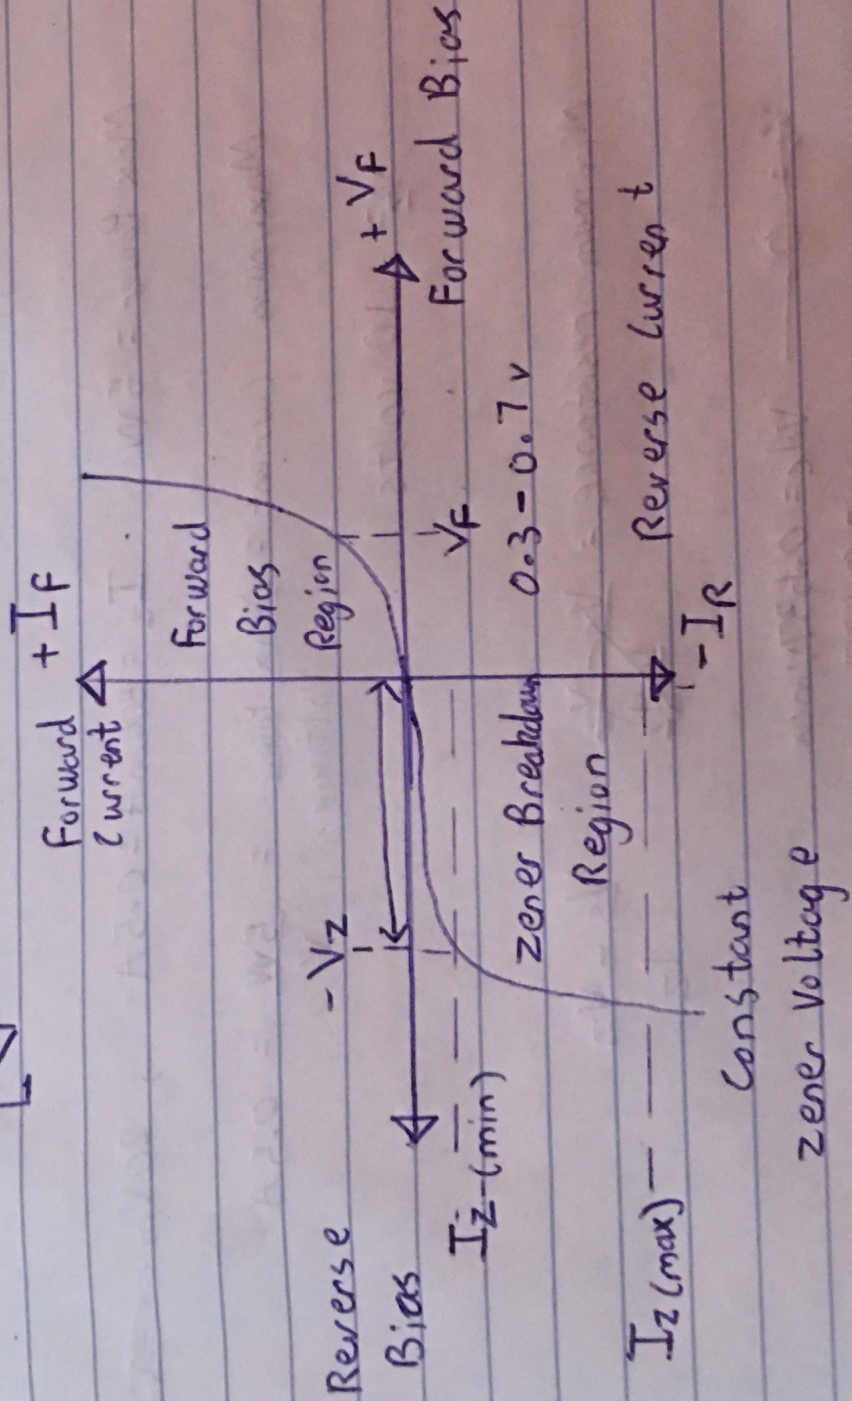 Forward
Current
+ IF
Forward
Bias
Region
- VZ
+ VF
Reverse
Bias
Forward Bias
VF
IZ (min)
0.3 - 0.7 v
Zener Breakdown
Region
IZ (max)
Reverse Current
- IR
Constant
Zener Voltage